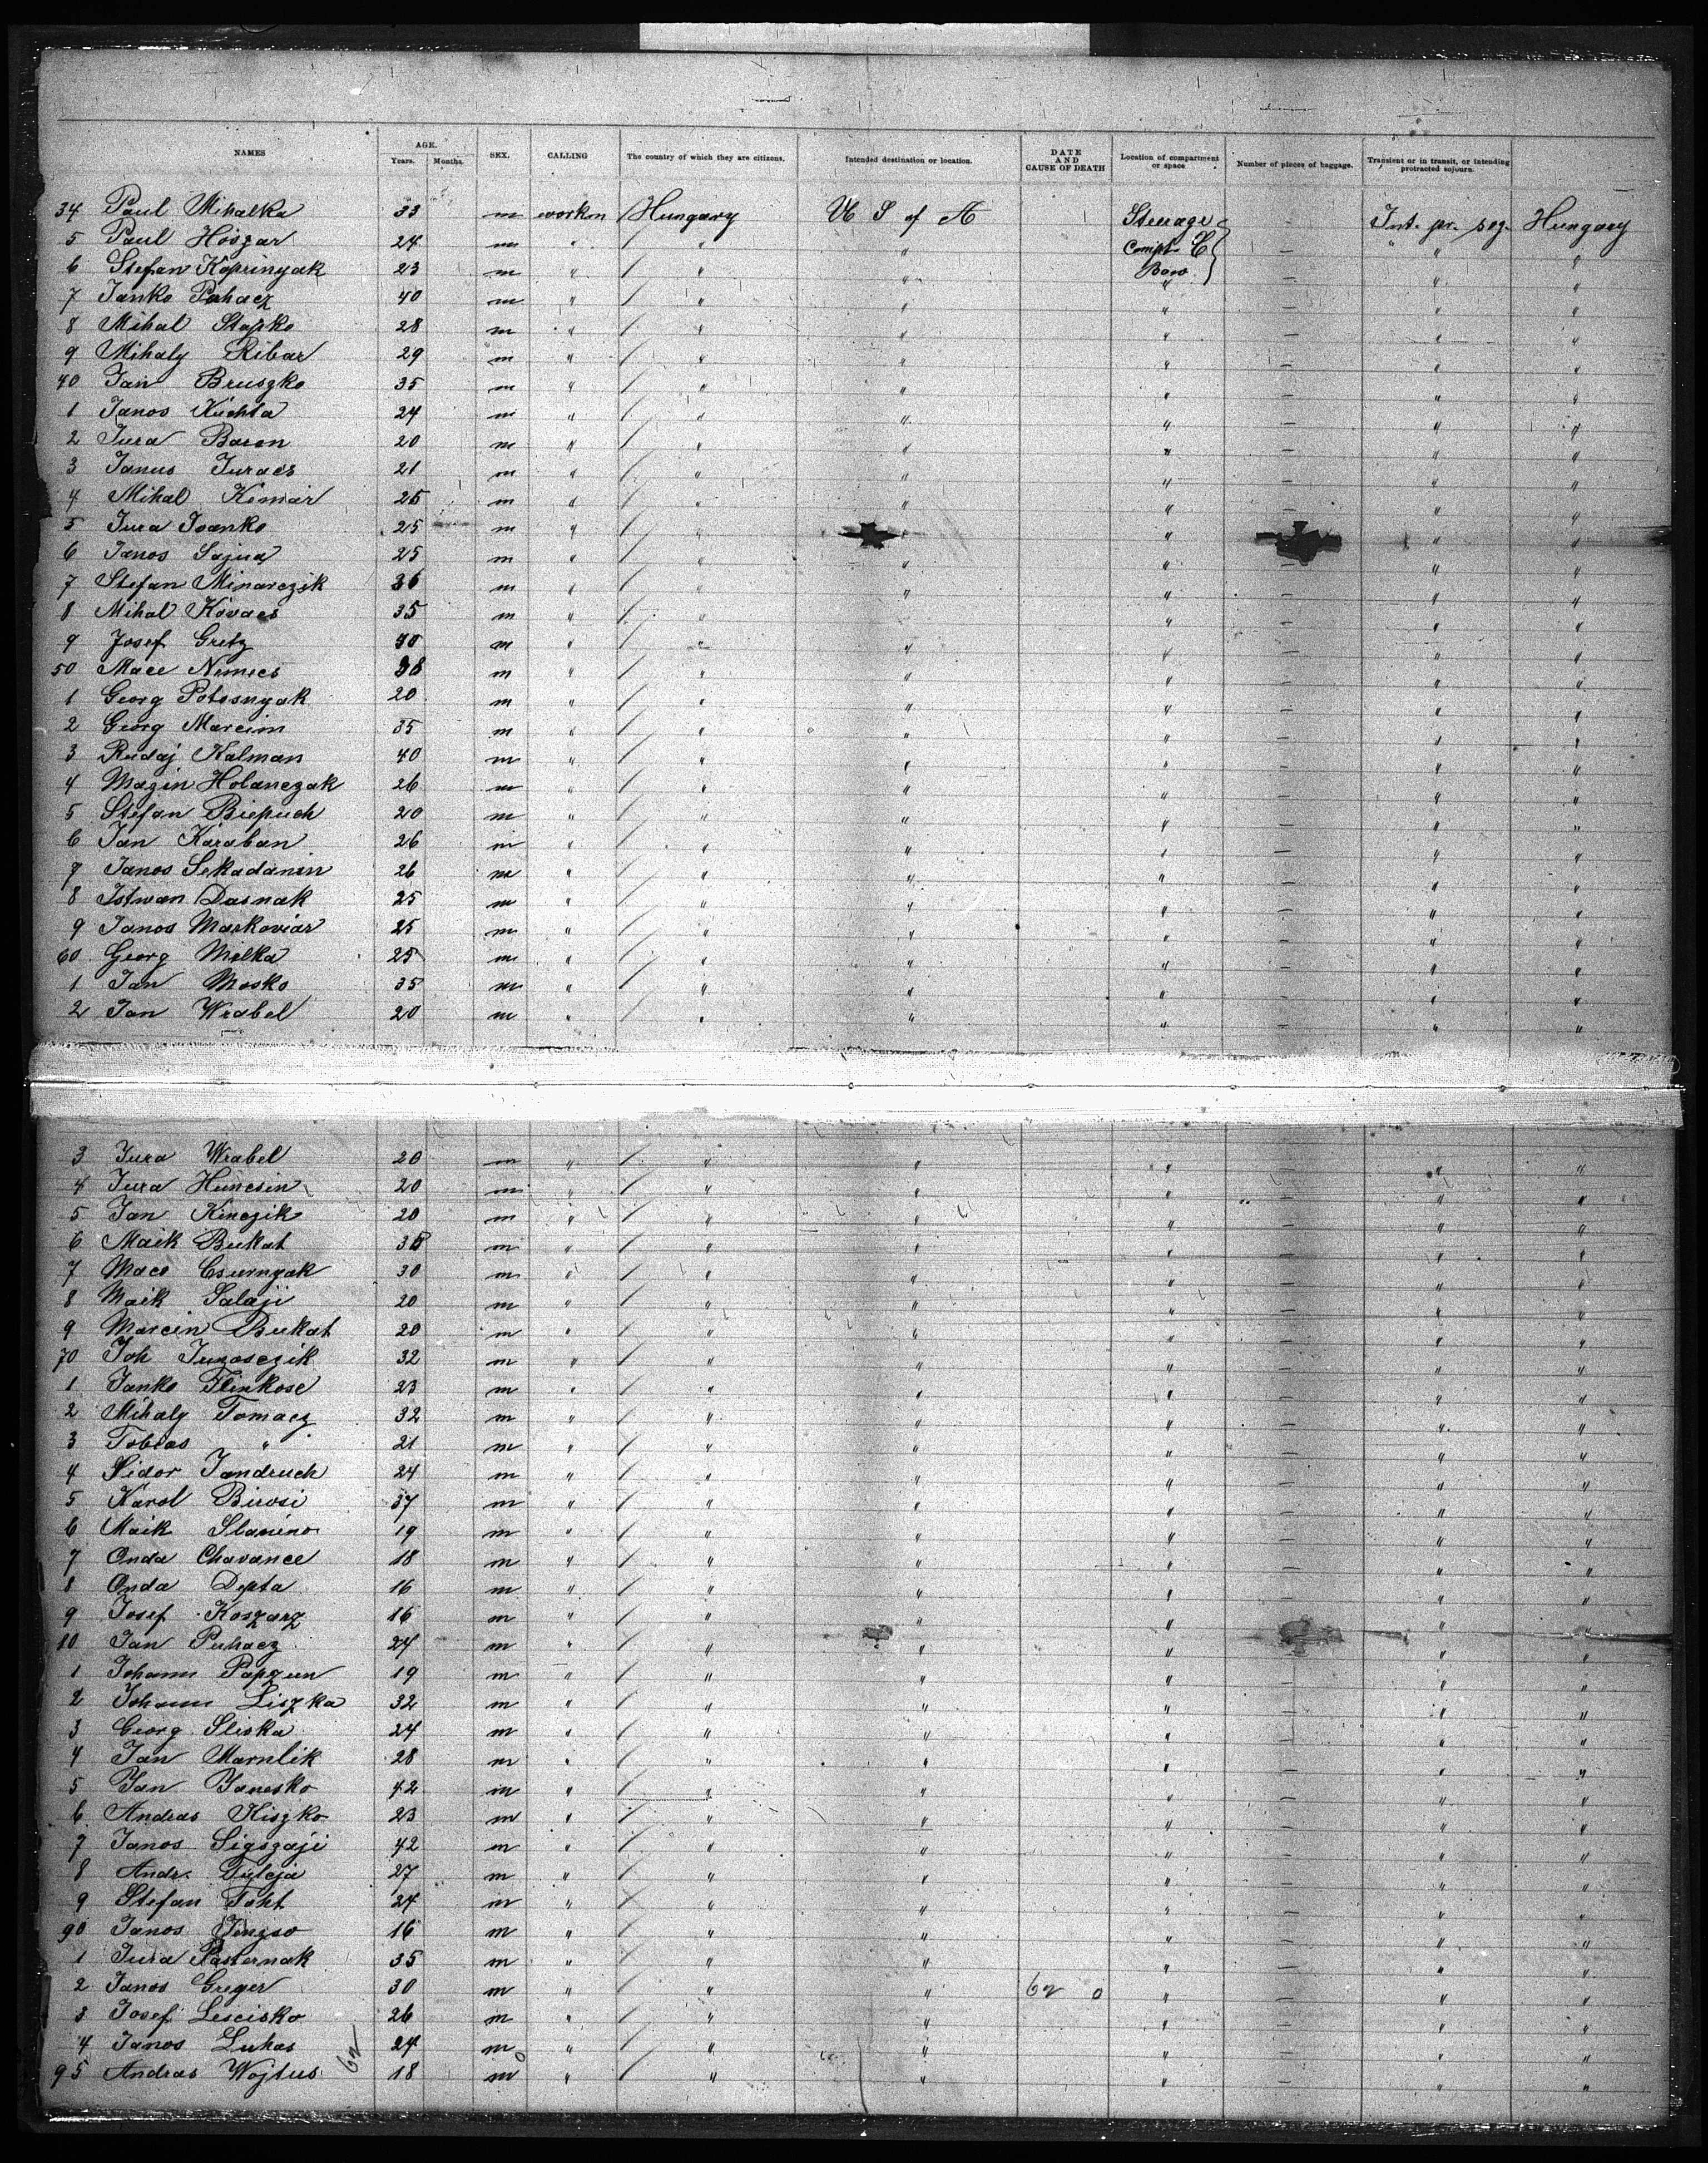 NAMES AGE. Years. Months. SEX. CALLING The country of which they are citizens. Intended destination or location. DATE AND CAUSE OF DEATH Location of compartment or space Number of pieces of baggage. Transient or in transit, or intending protracted sojourn.
34 Paul Mihalka 33 m workm / Hungary U S of A Steerage Int. pr. soj. Hungary
5 Paul Hoszar 24 m " / " " Compt. E — " "
6 Stefan Koprinyak 23 m " / " " Bow — " "
7 Janko Puhacz 40 m " / " " " — " "
8 Mihal Stapko 28 m " / " " " — " "
9 Mihaly Ribar 29 m " / " " " — " "
40 Jan Bruszko 35 m " / " " " — " "
1 Janos Kuchta 24 m " / " " " — " "
2 Jura Baron 20 m " / " " " — " "
3 Janus Juracs 21 m " / " " " — " "
4 Mihal Komar 25 m " / " " " — " "
5 Jura Ivanko 25 m " / " " — " "
6 Janos Sajua 25 m " / " " " — " "
7 Stefan Minarczik 36 m " / " " " — " "
8 Mihal Kovacs 35 m " / " " " — " "
9 Josef Gretz 40 m " / " " " — " "
50 Mace Nemecs 38 m " / " " " — " "
1 Georg Potosnyak 20 m " / " " " — " "
2 Georg Marcim 35 m " / " " " — " "
3 Rudaj Kalman 40 m " / " " " — " "
4 Mazin Holanczak 26 m " / " " " — " "
5 Stefan Biepuch 20 m " / " " " — " "
6 Jan Karaban 26 m " / " " " — " "
7 Janos Sekadanin 26 m " / " " " — " "
8 Istwan Dasnak 25 m " / " " " — " "
9 Janos Markoviar 25 m " / " " " — " "
60 Georg Milka 25 m " / " " " — " "
1 Jan Mosko 35 m " / " " " — " "
2 Jan Wrabel 20 m " / " " " — " "
3 Jura Wrabel 20 m " / " " " — " "
4 Jura Huncsin 20 m " / " " " — " "
5 Jan Kinczik 20 m " / " " " — " "
6 Maik Bukat 35 m " / " " " — " "
7 Maco Csurnyak 30 m " / " " " — " "
8 Maik Salaji 20 m " / " " " — " "
9 Marcin Bukat 20 m " / " " " — " "
70 Joh Juzosczik 32 m " / " " " — " "
1 Janko Flinkose 23 m " / " " " — " "
2 Mihaly Tomacz 32 m " / " " " — " "
3 Tobias " 21 m " / " " " — " "
4 Sidor Jandruch 24 m " / " " " — " "
5 Karol Birosi 37 m " / " " " — " "
6 Maik Slanino 19 m " / " " " — " "
7 Onda Chavance 18 m " / " " " — " "
8 Onda Depta 16 m " / " " " — " "
9 Josef Koszarz 16 m " / " " " — " "
80 Jan Puhacz 24 m " / " " " — " "
1 Johann Papzun 19 m " / " " " — " "
2 Johann Liszka 32 m " / " " " — " "
3 Georg Sliska 24 m " / " " " — " "
4 Jan Marnlik 28 m " / " " " — " "
5 Jan Janesko 42 m " / " " " — " "
6 Andras Kiszko 23 m " / " " " — " "
7 Janos Sigszaji 42 m " / " " " — " "
8 Andr. Tyleja 27 m " / " " " — " "
9 Stefan Toht 24 m " / " " " — " "
90 Janos 16 m " / " " " — " "
1 Jura Pasternak 35 m " / " " " — " "
2 Janos Greger 30 m " / " " 62 0 " — " "
3 Josef Lescisko 26 m " / " " " — " "
4 Janos Luhas 24 m " / " " " — " "
95 Andras Wojtus 62 18 m 0 " / " " " — " "